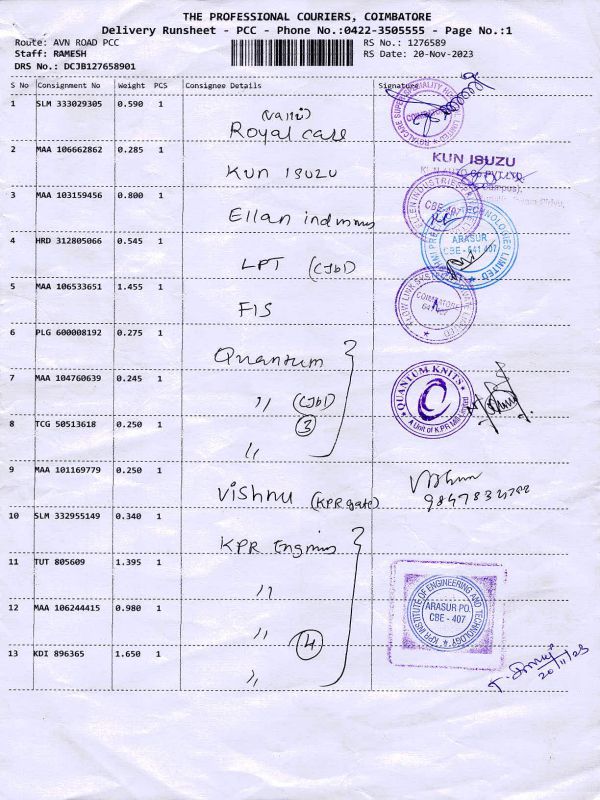 THE PROFESSIONAL COURIERS, COIMBATORE
Delivery Runsheet - PCC - Phone No.:0422-3505555 - Page No.:1
Route: AVN ROAD PCC
RS No.: 1276589
Staff: RAMESH
RS Date: 20-Nov-2023
DRS No.: DCJB127658901
S No Consignment No Weight PCS Consignee Details Signature
1 SLM 333029305 0.590 1 Royal care
2 MAA 106662862 0.285 1 KUN ISUZU
KUN ISUZU
3 MAA 103159456 0.800 1 Ellan
CBE-407
4 HRD 312805066 0.545 1 LPT (CJb1)
TECHNOLOGIES LIMITED
ARASUR
CBE - 641 407
5 MAA 106533651 1.455 1 FIS
COIMBATORE
6 PLG 600008192 0.275 1 Quantum
7 MAA 104760639 0.245 1 ,, (CJb1)
QUANTUM KNITS
A Unit of KPR Mill Limited
8 TCG 50513618 0.250 1 ,,
3
9 MAA 101169779 0.250 1 Vishnu (KPR gate)
10 SLM 332955149 0.340 1 KPR
11 TUT 805609 1.395 1 ,,
KPR INSTITUTE OF ENGINEERING AND TECHNOLOGY
ARASUR PO.
CBE - 407
12 MAA 106244415 0.980 1 ,,
4
13 KDI 896365 1.650 1 ,,
20/11/23